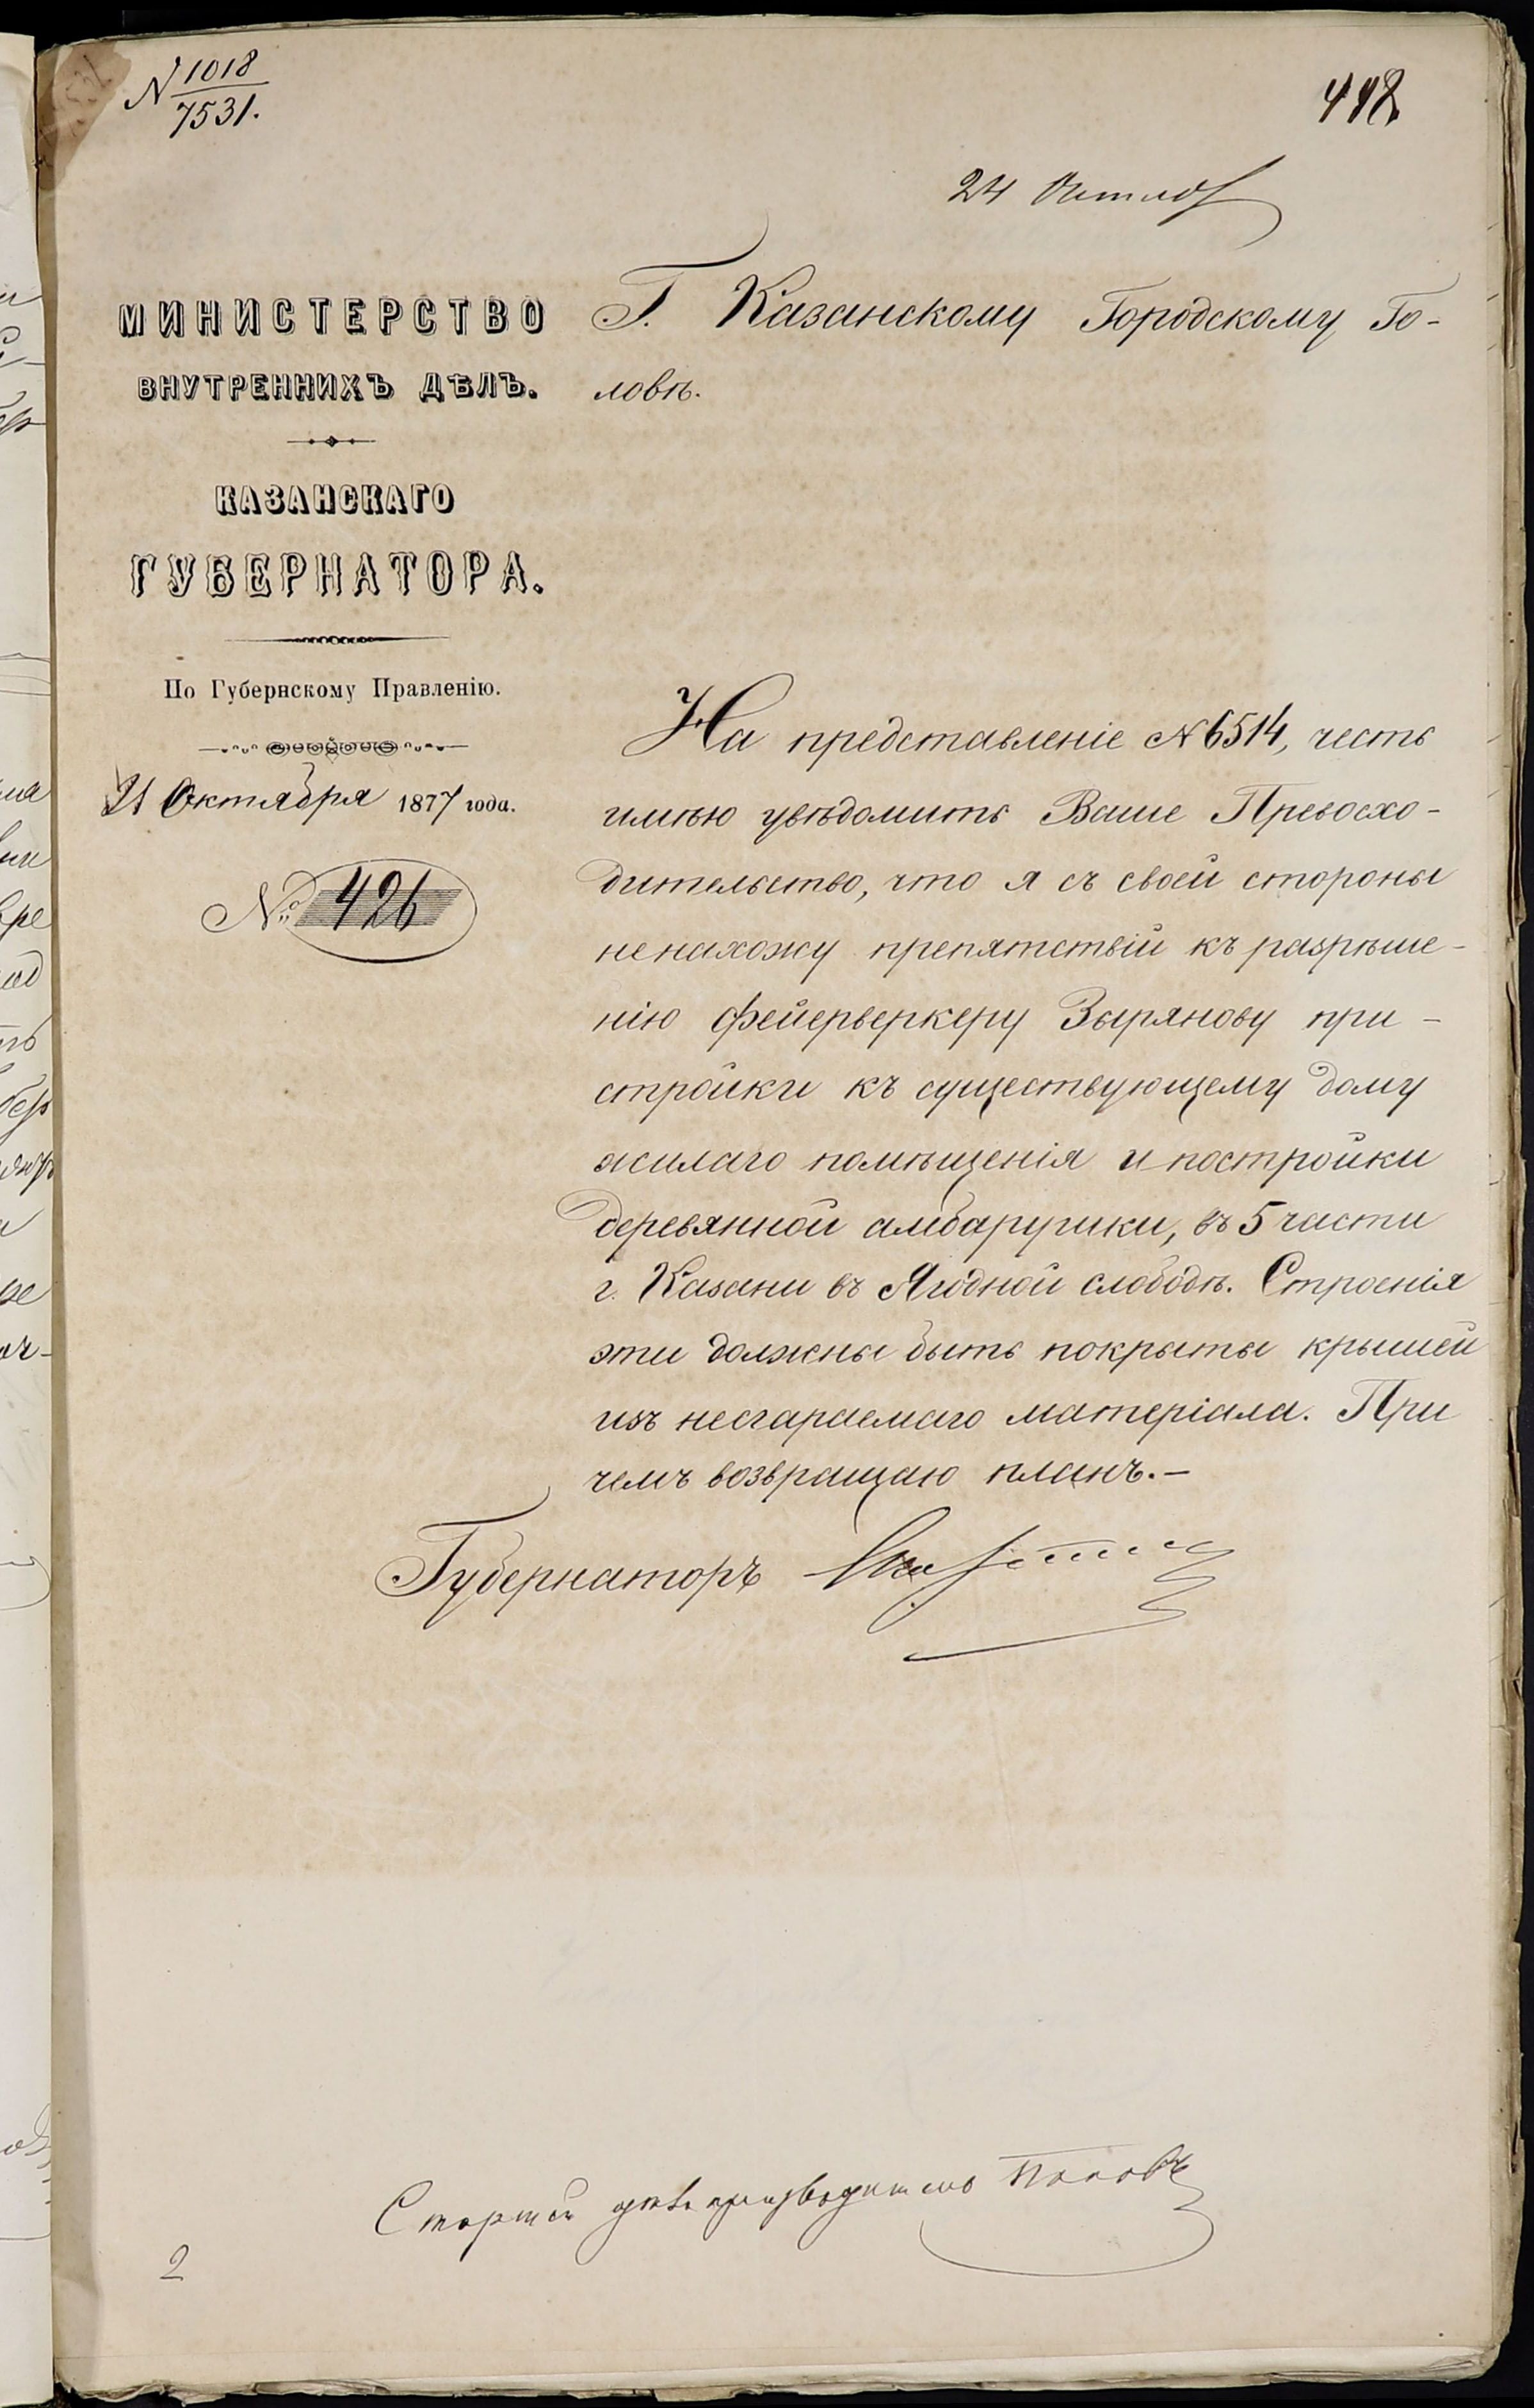 N 1018
7531.
442
24 Октяб
МИНИСТЕРСТВО
ВНУТРЕННИХЪ ДѢЛЪ.
КАЗАНСКАГО
ГУБЕРНАТОРА.
По Губернскому Правленію.
21 Октября 1877 года.
№ 426
Г. Казанскому Городскому Го-
ловѣ.
На представленіе N 6514, честь
имѣю увѣдомить Ваше Превосхо-
дительство, что я съ своей стороны
не нахожу препятствій къ разрѣше-
нію фейерверкеру Зырянову при-
стройки къ существующему дому
жилаго помѣщенія и постройки
деревянной амбарушки, въ 5 части
г. Казани въ Ягодной слободѣ. Строенія
эти должны быть покрыты крышей
изъ несгараемаго матеріала. При
чемъ возвращаю планъ.—
Губернаторъ
Старшій дѣлопроизводитель Поповъ
2